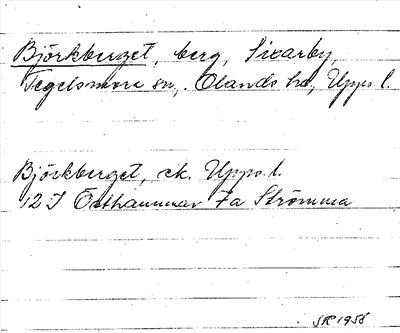 Björkberget, berg, Sixarby,
Tegelsmora sn, Olands hd, Upps. l.
Björkberget, ek. Upps. l.
12 I Östhammar 7a Strömma
1958